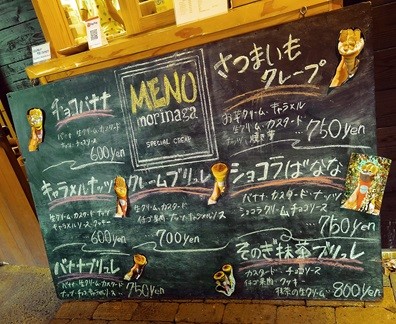 チョコバナナ
バナナ・生クリーム・カスタード
ナッツ・チョコソース
600yen
MENU
morinaga
SPECIAL COCOA
さつまいも
クレープ
お芋クリーム・キャラメル
生クリーム・カスタード
ナッツ・焼き芋
... 750yen
キャラメルナッツ
生クリーム・カスタード・ナッツ
キャラメルソース・クッキー
600yen
クレームブリュレ
生クリーム・カスタード
イチゴ果肉・ナッツ・キャラメルソース
... 700yen
ショコラばなな
バナナ・カスタード・ナッツ
ショコラクリーム・チョコソース
... 750yen
バナナブリュレ
バナナ・生クリーム・カスタード
ナッツ・キャラメルソース... 750yen
そのぎ抹茶ブリュレ
カスタード・チョコソース
イチゴ果肉・クッキー
抹茶の生クリーム... 800yen